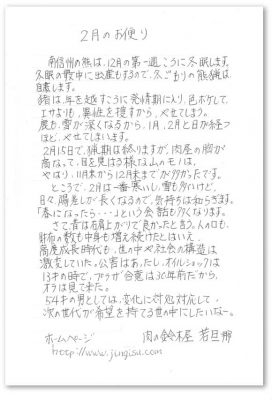 2月のお便り
南信州の熊は、12月の第一週ごろに冬眠します。
冬眠の最中に出産もするので、冬ごもりの熊猟は
自粛します。
猪は、年を越すころに発情期に入り、色ボケして、
エサよりも、異性を捜すから、やせてしまう。
鹿も、雪が深くなるから、1月、2月と日が経つ
ほど、やせてしまいます。
2月15日で、猟期は終りますが、肉屋の胸が
高なって、目を見はる様な山のモノは、
やはり、11月末から12月末までが多かったです。
ところで、2月は一番寒いし、雪も多いけど、
日々陽差しが長くなるので、気持ちは和らぎます。
「春になったら・・・」という会話も多くなります。
さて昔は右肩上がりで良かったと言う。人の口も、
財布の数も中身も増え続けたとはいえ、
高度成長時代も、世の中や社会の構造は
激変していた。公害はあったし、オイルショックは
13才の時で、プラザ合意は30年前だから、
オラは見て来た。
54才の男としては、変化に対処対応して、
次の世代が希望を持てる世の中にしたいなー。
ホームページ 肉の鈴木屋 若旦那
http://www.jingisu.com